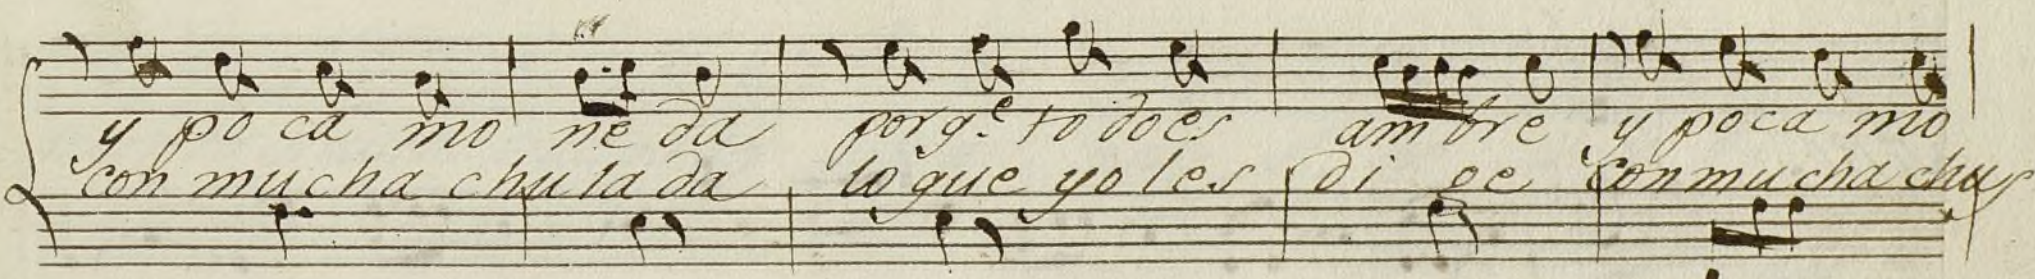 y po ca mo ne da porq.e to does am bre y poca mo
con mucha chu la da lo que yo les di ge con mu cha chus